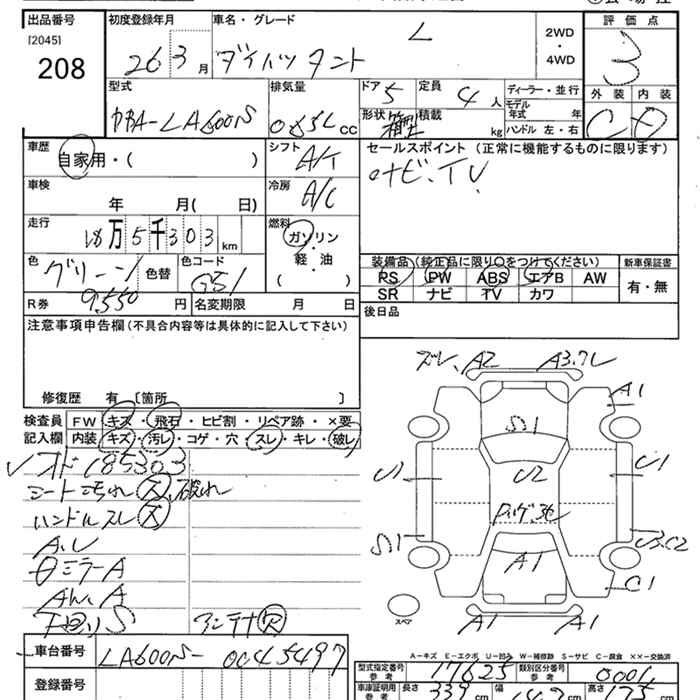 出品番号 初度登録年月 車名・グレード 評価点
[2045] L 2WD・4WD
208 26 3月 ダイハツ タント 3
型式 排気量 ドア 5 定員 4人 ディーラー・並行 外装 内装
DBA-LA600S 0.65L CC 形状 箱型 積載 kg モデル年式 年 C D
ハンドル 左・右
車歴 シフト セールスポイント (正常に機能するものに限ります)
自家用・( ) A/T ナビ、TV
車検 冷房
年 月( 日) A/C
走行 燃料
18万5千303km ガソリン・軽・油
色 グリーン 色替 色コード G51 ( )
装備品(純正品に限り○をつけてください) 新車保証書
PS PW ABS エアB AW 有・無
SR ナビ TV カワ
R券 9,550円 名変期限 月 日 後日品
注意事項申告欄(不具合内容等は具体的に記入して下さい)
修復歴 有 [箇所 ]
検査員 FW キズ・飛石・ヒビ割・リペア跡・×要
記入欄 内装 キズ・汚レ・コゲ・穴・スレ・キレ・破レ
A2 A3.
A1
S1
U1 U2 C1
S1 U3.C2
A1 C1
A1 A1
スペア
オド185303
シート汚れ 大、破れ
ハンドルスレ 大
A.U
ミラーA
下回りS アンテナ
A-キズ E-エクボ U-凹ミ W-補修跡 S-サビ C-腐食 ××-交換済
車台番号 LA600S-0045497
型式指定番号 参考 17625 類別区分番号 参考 0001
登録番号
車庫証明用 参考 長さ 339cm 幅 147cm 高さ 175cm